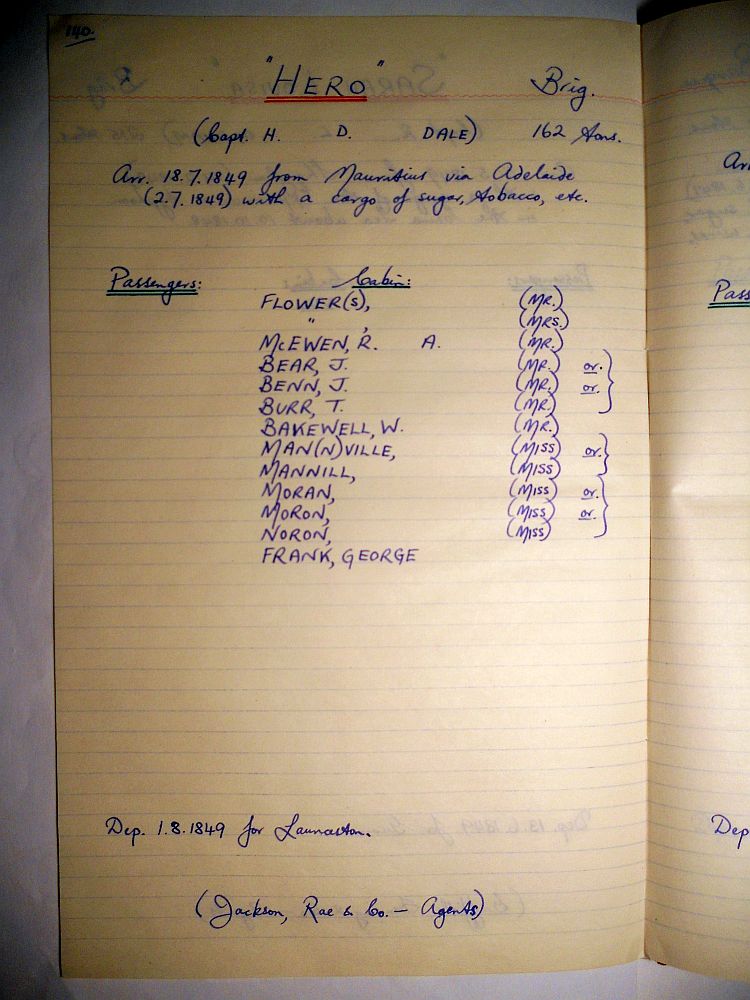 140.
"HERO" Brig.
(Capt. H. D. DALE) 162 tons.
Arr. 18.7.1849 from Mauritius via Adelaide
(2.7.1849) with a cargo of sugar, tobacco, etc.
Passengers: Cabin:
FLOWER(S), (MR.)
" , (MRS.)
McEWEN, R. A. (MR.)
BEAR, J. (MR.) or.
BENN, J. (MR.) or.
BURR, T. (MR.)
BAKEWELL, W. (MR.)
MAN(N)VILLE, (MISS) or.
MANNILL, (MISS)
MORAN, (MISS) or.
MORON, (MISS) or.
NORON, (MISS)
FRANK, GEORGE
Dep. 1.8.1849 for Launceston.
(Jackson, Rae & Co. - Agents)
Arr
Pass
Dep